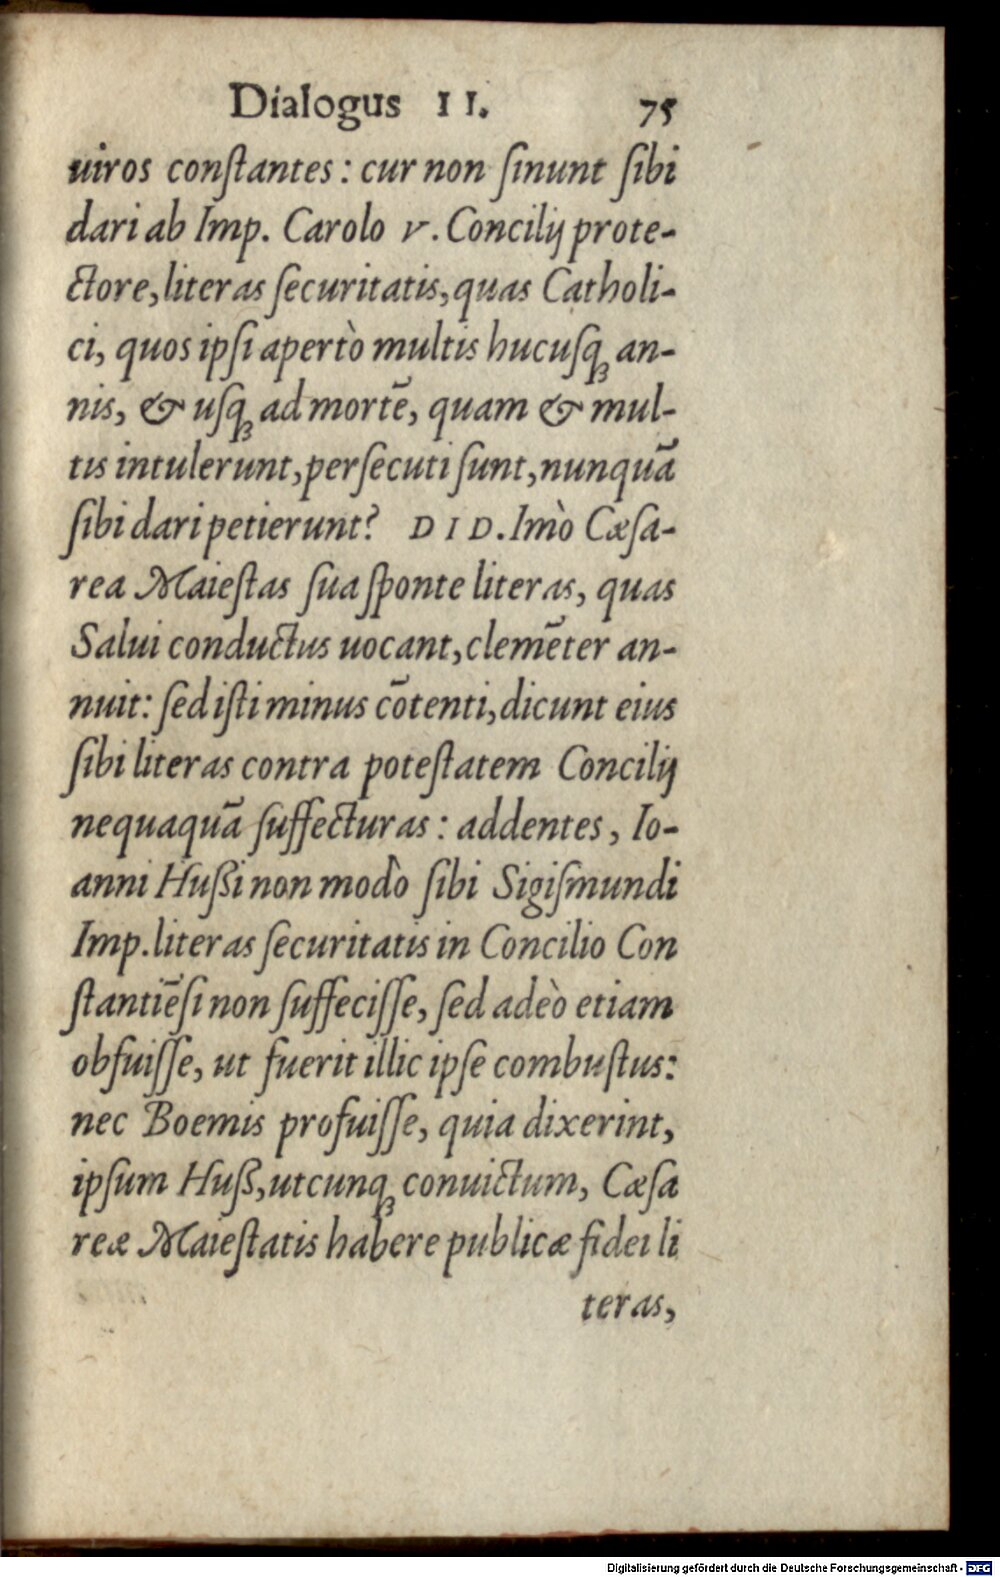 Dialogus II. 75
uiros conſtantes: cur non ſinunt ſibi
dari ab Imp. Carolo v. Concilij prote-
ctore, literas ſecuritatis, quas Catholi-
ci, quos ipſi apertò multis hucuſqꝫ an-
nis, & uſqꝫ ad mortē, quam & mul-
tis intulerunt, perſecuti ſunt, nunquā
ſibi dari petierunt? DID. Imò Cæſa-
rea Maieſtas ſua ſponte literas, quas
Salui conductus uocant, clemēter an-
nuit: ſed iſti minus cōtenti, dicunt eius
ſibi literas contra poteſtatem Concilij
nequaquā ſuffecturas: addentes, Io-
anni Hußi non modò ſibi Sigiſmundi
Imp. literas ſecuritatis in Concilio Con
ſtantiēſi non ſuffeciſſe, ſed adeò etiam
obfuiſſe, ut fuerit illic ipſe combuſtus:
nec Boemis profuiſſe, quia dixerint,
ipſum Huß, utcunqꝫ conuictum, Cæſa
reæ Maieſtatis habere publicæ fidei li
teras,
Digitalisierung gefördert durch die Deutsche Forschungsgemeinschaft - DFG